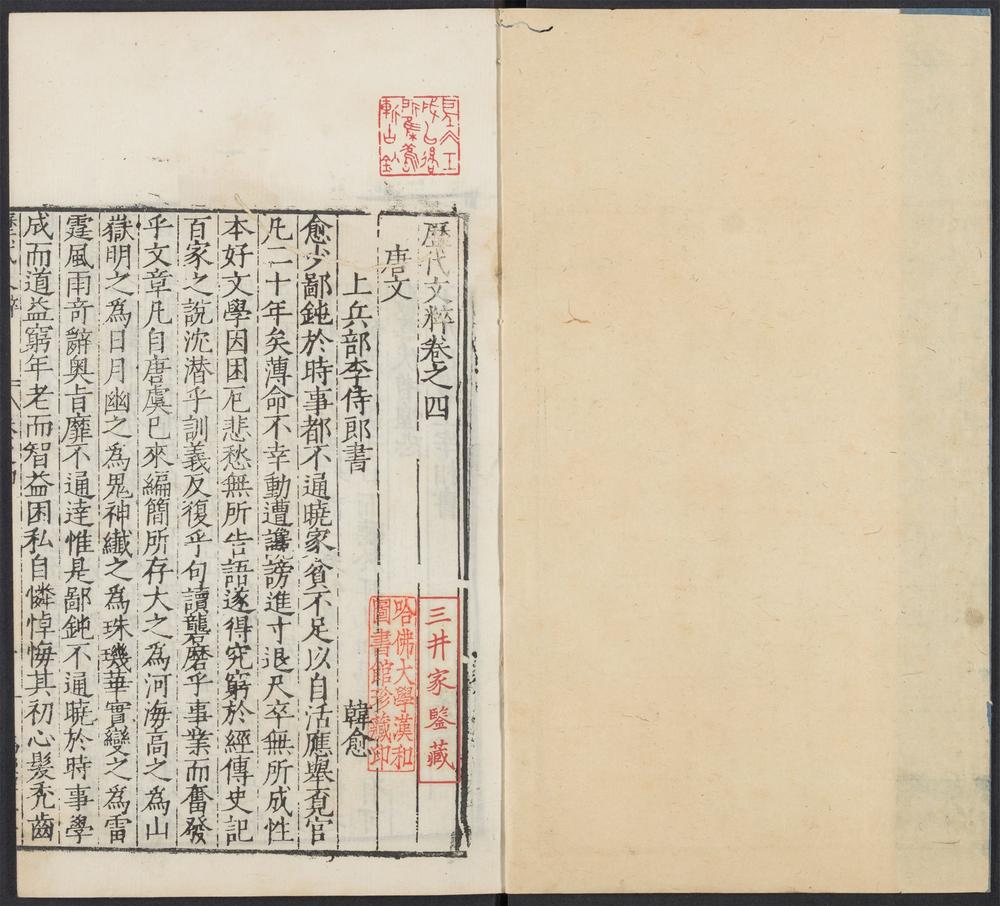 歷代文粹卷之四
唐文
上兵部李侍郎書 韓愈
愈少鄙鈍於時事都不通曉家貧不足以自活應舉覓官
凡二十年矣薄命不幸動遭讒謗進寸退尺卒無所成性
本好文學因困厄悲愁無所告語遂得究窮於經傳史記
百家之說沈潜乎訓義反復乎句讀礱磨乎事業而奮發
乎文章凡自唐虞已來編簡所存大之為河海高之為山
嶽明之為日月幽之為鬼神纎之為珠璣華實變之為雷
霆風雨竒辭奥旨靡不通逹惟是鄙鈍不通曉於時事學
成而道益窮年老而智益困私自憐悼悔其初心髮禿齒
三井家鑒藏
哈佛大學漢和
圖書館珍藏印